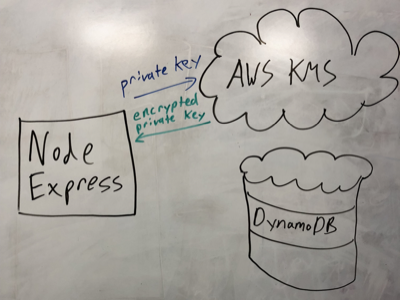 private key
AWS KMS
encrypted
private key
Node
Express
DynamoDB